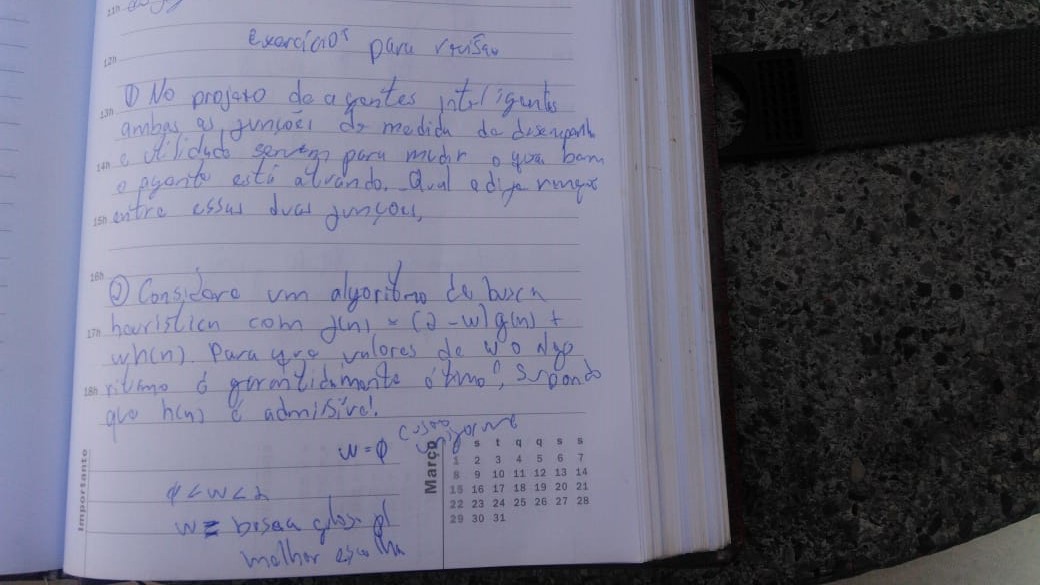 11h
exercícios para revisão
12h
① No projeto de agentes inteligentes
13h
ambas as funções de medida de desempenho
14h
e utilidade servem para medir o que bem
o agente está atuando. Qual a diferença
15h
entre essas duas funções,
16h
② Considere um algoritmo de busca
17h
heurística com f(n) = (2-w)g(n) +
wh(n). Para que valores de w o algo
18h
ritmo é garantidamente ótimo, supondo
que h(n) é admissível.
w=φ custo uniforme
φ<w<2
w= busca gulosa pl
melhor escolha
Importante
Março
s t q q s s
1 2 3 4 5 6 7
8 9 10 11 12 13 14
15 16 17 18 19 20 21
22 23 24 25 26 27 28
29 30 31